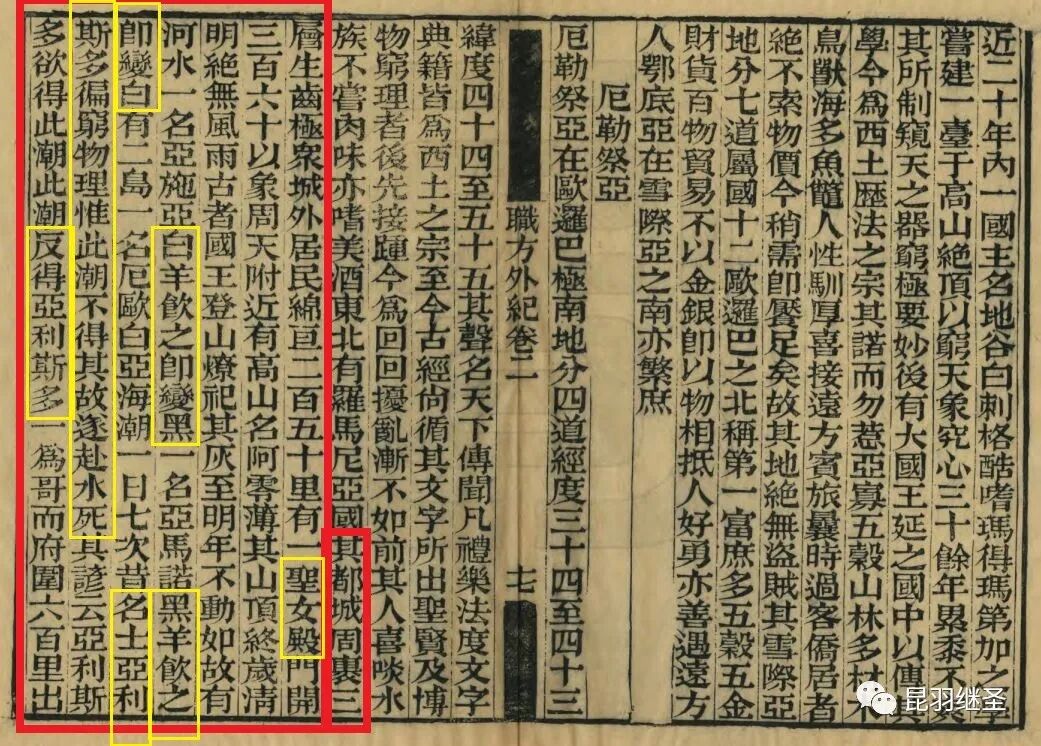 近二十年內一國主名地谷白剌格酷嗜瑪得瑪第加之學
嘗建一臺于高山絕頂以窮天象究心三十餘年累黍不爽
其所制窺天之器窮極要妙後有大國王延之國中以傳其
學今爲西土歷法之宗其諾而勿惹亞寡五穀山林多材木
鳥獸海多魚鼈人性馴厚喜接遠方賓旅曩時過客僑居者
絕不索物價今稍需卽饜足矣故其地絕無盜賊其雪際亞
地分七道屬國十二歐邏巴之北稱第一富庶多五穀五金
財貨百物貿易不以金銀卽以物相抵人好勇亦善遇遠方
人鄂底亞在雪際亞之南亦繁庶
厄勒祭亞
厄勒祭亞在歐邏巴極南地分四道經度三十四至四十三
職方外紀卷二
十七
緯度四十四至五十五其聲名天下傳聞凡禮樂法度文字
典籍皆爲西土之宗至今古經尙循其文字所出聖賢及博
物窮理者後先接踵今爲回回擾亂漸不如前其人喜啖水
族不嘗肉味亦嗜美酒東北有羅馬尼亞國其都城周裹三
層生齒極衆城外居民綿亘二百五十里有一聖女殿門開
三百六十以象周天附近有高山名阿零薄其山頂終歲淸
明絕無風雨古者國王登山燎祀其灰至明年不動如故有
河水一名亞施亞白羊飮之卽變黑一名亞馬諾黑羊飮之
卽變白有二島一名厄歐白亞海潮一日七次昔名士亞利
斯多徧窮物理惟此潮不得其故遂赴水死其諺云亞利斯
多欲得此潮此潮反得亞利斯多一爲哥而府圍六百里出
昆羽继圣